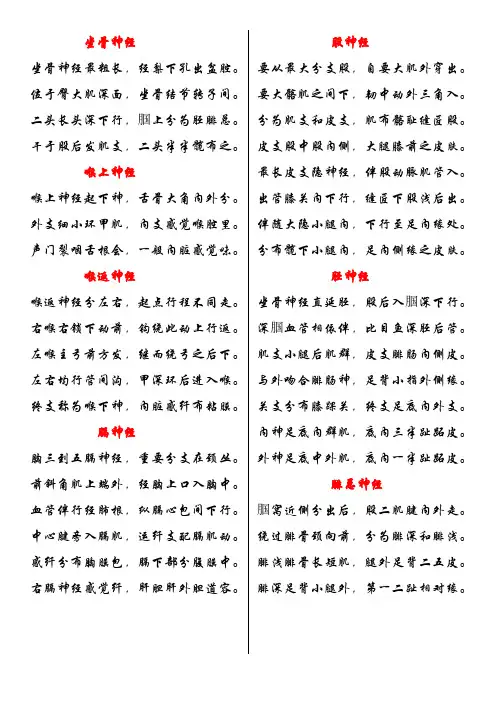 坐骨神经
坐骨神经最粗长，经梨下孔出盆腔。
位于臀大肌深面，坐骨结节转子间。
二头长头深下行，腘上分为胫腓总。
干于股后发肌支，二头半半髋布之。
喉上神经
喉上神经起下神，舌骨大角内外分。
外支细小环甲肌，内支感觉喉腔里。
声门裂咽舌根会，一般内脏感觉味。
喉返神经
喉返神经分左右，起点行程不同走。
右喉右锁下动前，钩绕此动上行返。
左喉主弓前方发，继而绕弓之后下。
左右均行管间沟，甲深环后进入喉。
终支称为喉下神，内脏感纤布粘膜。
膈神经
胸三到五膈神经，重要分支在颈丛。
前斜角肌上端外，经胸上口入胸中。
血管伴行经肺根，纵膈心包间下行。
中心腱旁入膈肌，运纤支配膈肌动。
感纤分布胸膜包，膈下部分腹膜中。
右膈神经感觉纤，肝胆肝外胆道容。
股神经
要丛最大分支股，自要大肌外穿出。
要大髂肌之间下，韧中动外三角入。
分为肌支和皮支，肌布髂耻缝匠股。
皮支股中股内侧，大腿膝前之皮肤。
最长皮支隐神经，伴股动脉肌管入。
出管膝关内下行，缝匠下股浅后出。
伴随大隐小腿内，下行至足内缘处。
分布髌下小腿内，足内侧缘之皮肤。
胫神经
坐骨神经直延胫，股后入腘深下行。
深腘血管相依伴，比目鱼深胫后管。
肌支小腿后肌群，皮支腓肠内侧皮。
与外吻合腓肠神，足背小指外侧缘。
关支分布膝踝关，终支足底内外支。
内神足底内群肌，底内三半趾跖皮。
外神足底中外肌，底内一半趾跖皮。
腓总神经
腘窝近侧分出后，股二肌腱内外走。
绕过腓骨颈向前，分为腓深和腓浅。
腓浅腓骨长短肌，腿外足背二五皮。
腓深足背小腿外，第一二趾相对缘。